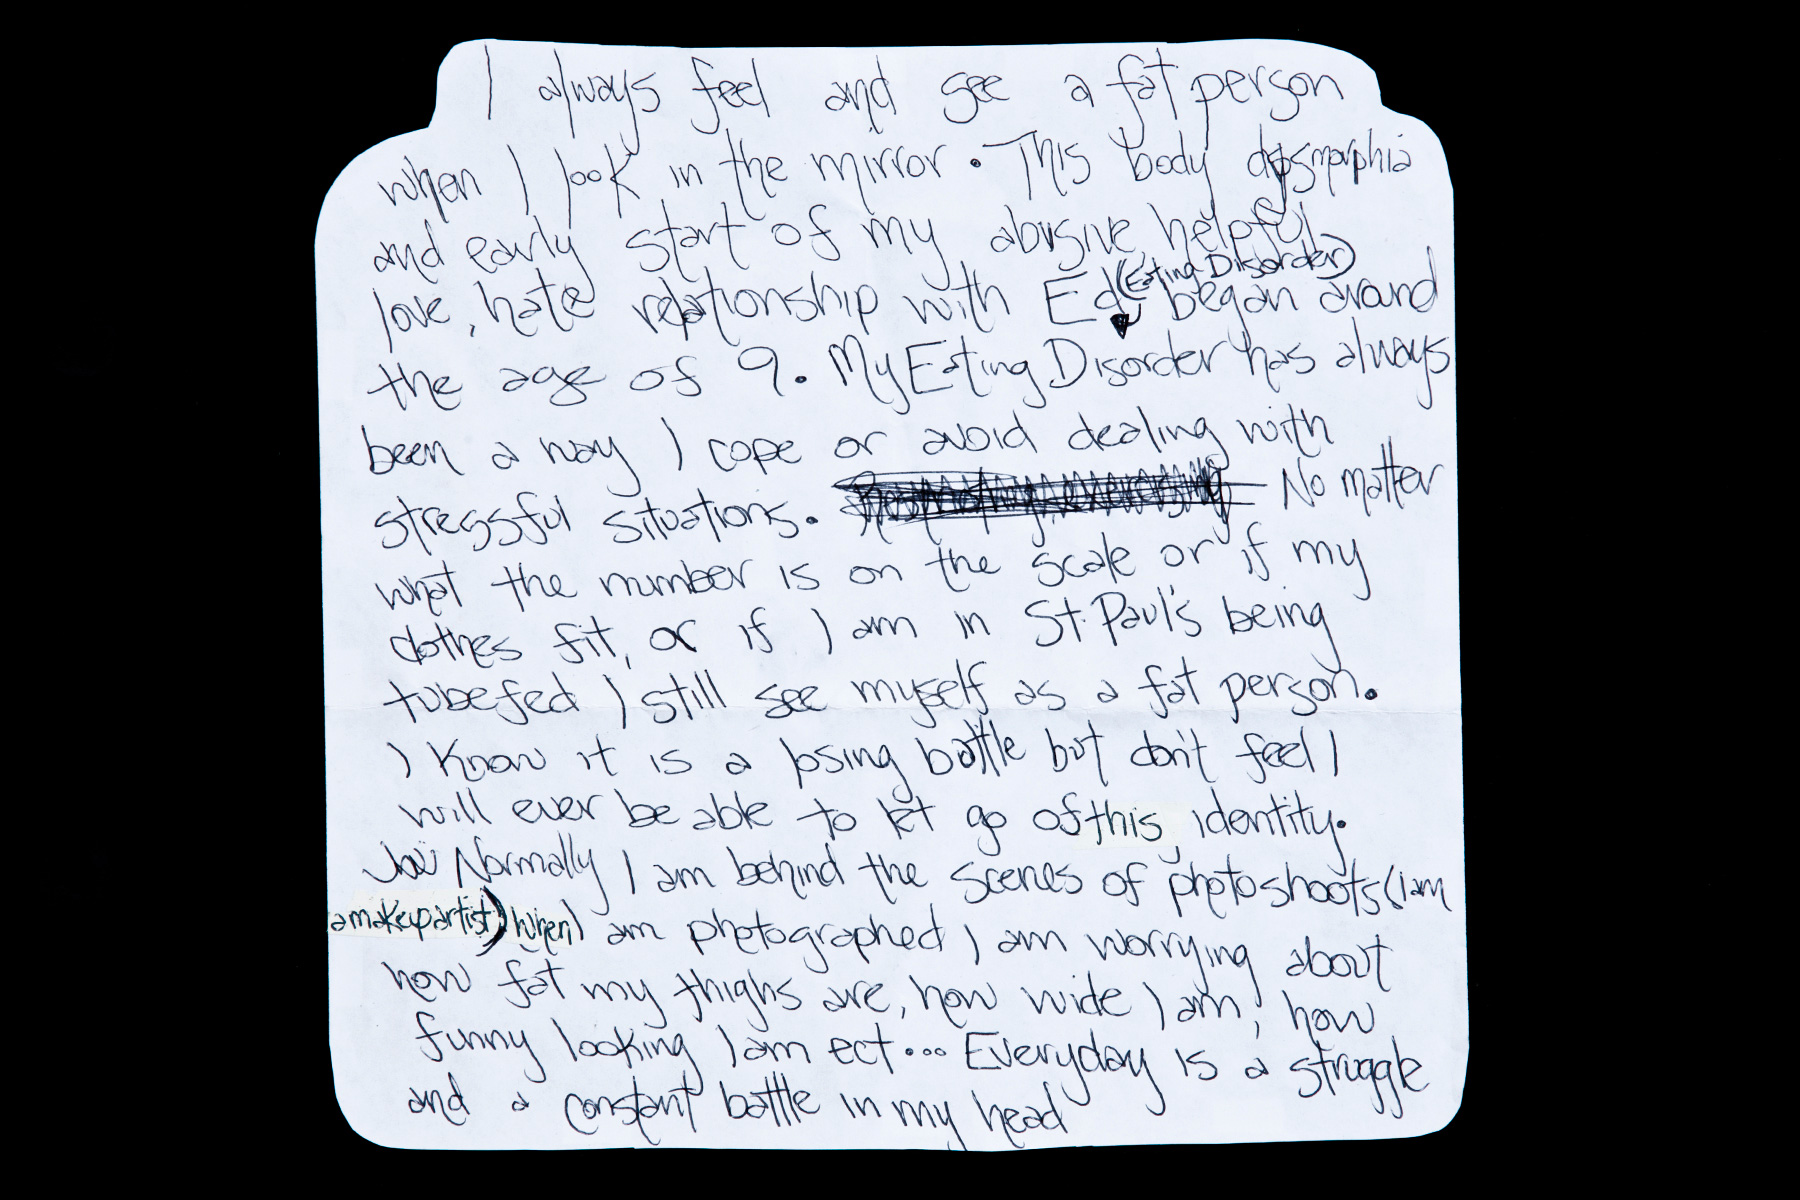 I always feel and see a fat person
when I look in the mirror. This body dysmorphia
and early start of my abusive helpful
love, hate relationship with Ed (Eating Disorder) began around
the age of 9. My Eating Disorder has always
been a way I cope or avoid dealing with
stressful situations. No matter
what the number is on the scale or if my
clothes fit, or if I am in St. Paul's being
tubefed I still see myself as a fat person.
I know it is a losing battle but don't feel I
will ever be able to let go of this identity.
Normally I am behind the scenes of photoshoots (I am
a makeup artist) when I am photographed I am worrying about
how fat my thighs are, how wide I am, how
funny looking I am ect... Everyday is a struggle
and a constant battle in my head